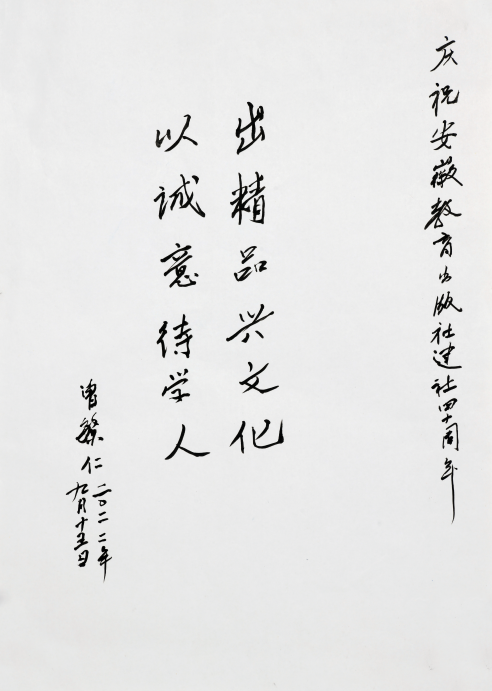 庆祝安徽教育出版社建社四十周年
出精品兴文化
以诚意待学人
曾繁仁 二〇二二年
九月十五日